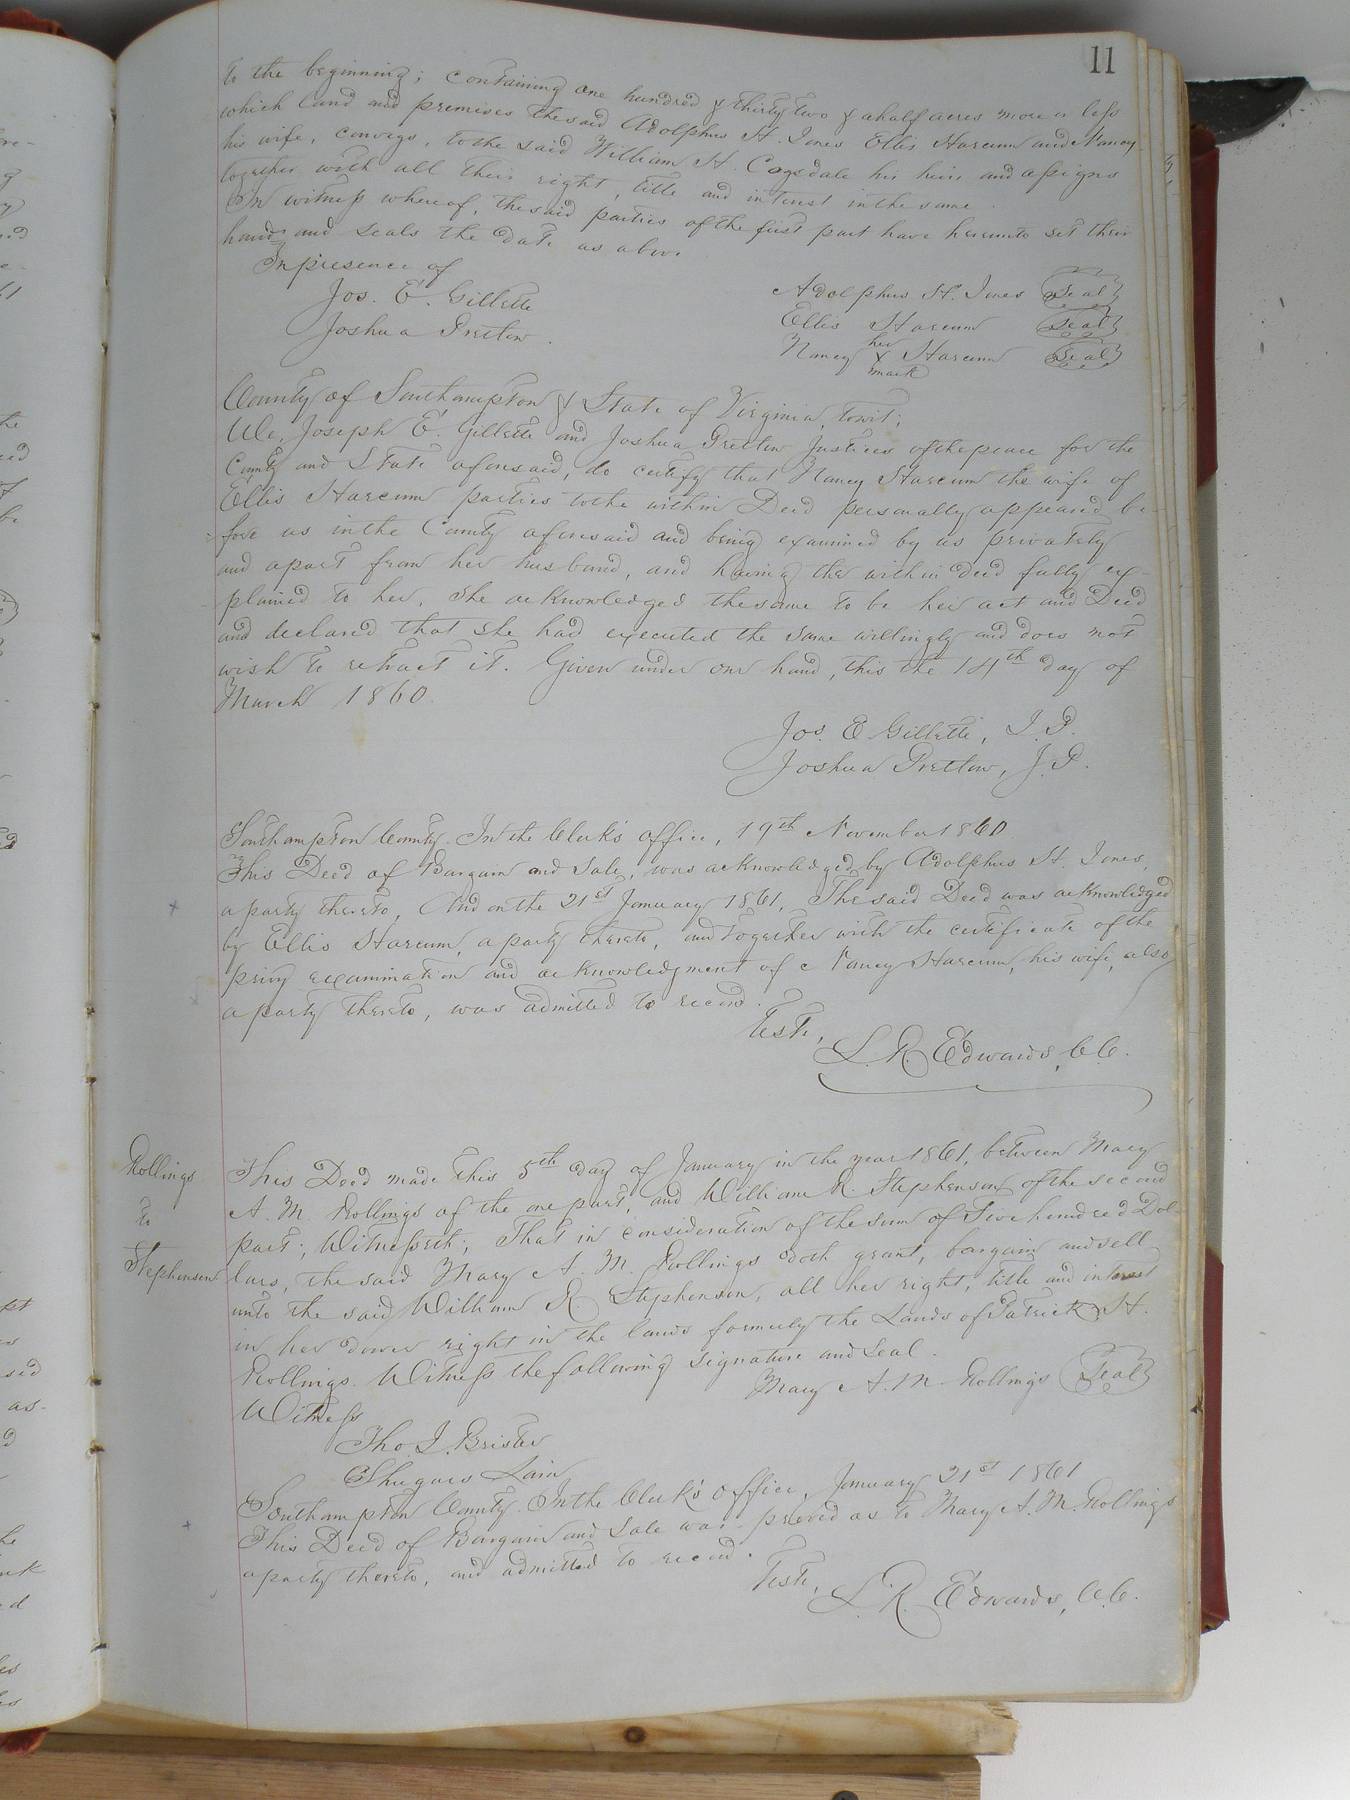 11
to the beginning; containing one hundred & thirty two & a half acres more or less
which land and premises the said Adolphus H. Jones Ellis Harcum and Nancy
his wife, conveys, to the said William H. Cogsdale his heirs and assigns
together with all their right, title and interest in the same.
In witness whereof, the said parties of the first part have hereunto set their
hands and seals the date as above.
In presence of
Jos. E. Gillette
Joshua Pretlow.
Adolphus H. Jones Seal
Ellis Harcum Seal
Nancy her X mark Harcum Seal
County of Southampton & State of Virginia, towit;
We, Joseph E. Gillette and Joshua Pretlow Justices of the peace for the
County and State aforesaid, do certify that Nancy Harcum the wife of
Ellis Harcum parties to the within Deed personally appeared be-
fore us in the County aforesaid and being examined by us privately
and apart from her husband, and having the within deed fully ex-
plained to her, she acknowledged the same to be her act and Deed
and declared that she had executed the same willingly and does not
wish to retract it. Given under our hand, this the 14th day of
March 1860.
Jos. E Gillette, J. P.
Joshua Pretlow, J. P.
Southampton County. In the Clerk's office, 19th November 1860
This Deed of Bargain and Sale, was acknowledged by Adolphus H. Jones,
a party thereto, And on the 21st January 1861, The said Deed was acknowledged
by Ellis Harcum, a party thereto, and together with the certificate of the
privy examination and acknowledgment of Nancy Harcum, his wife, also
a party thereto, was admitted to record.
Teste,
L. R. Edwards, C.C.
Rollings
to
Stephenson
This Deed made this 5th day of January in the year 1861, between Mary
A. M. Rollings of the one part, and William R. Stephenson of the second
part; Witnesseth; That in consideration of the sum of Five hundred Dol-
lars, the said Mary A. M. Rollings doth grant, bargain and sell
unto the said William R. Stephenson, all her right, title and interest
in her dower right in the lands formerly the Lands of Patrick H.
Rollings. Witness the following signature and seal.
Mary A. M. Rollings Seal
Witness
Tho. J. Brister
Shugars Lain
Southampton County. In the Clerk's office, January 21st 1861
This Deed of Bargain and Sale was proved as to Mary A. M. Rollings
a party thereto, and admitted to record.
Teste,
L. R. Edwards, C.C.